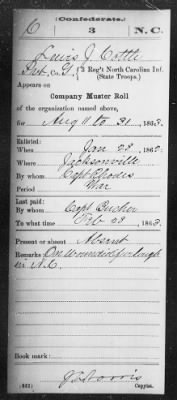 (Confederate.)
C 3 N. C.
Lewis J. Cottle
Pvt, Co. G, (3 Reg't North Carolina Inf.
(State Troops.)
Appears on
Company Muster Roll
of the organization named above,
for Aug 11 to 31, 1863.
Enlisted:
When Jan 28, 1862.
Where Jacksonville
By whom Capt Rhodes
Period War
Last paid:
By whom Capt
To what time Feb 28, 1863.
Present or absent Absent
Remarks: On wounded furlough
in N.C.
Book mark:
(642)
Copyist.